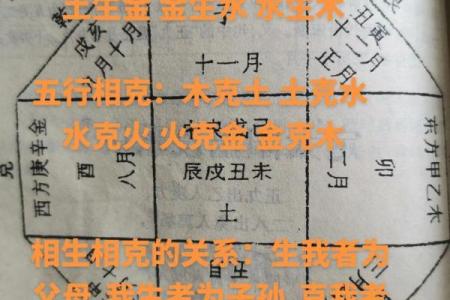 土生金 金生水 水生木
戌亥
九月十月
十一月
丑寅
十二月
正月
五行相克：木克土 土克水
水克火 火克金 金克木
中央戊己
辰戌丑未
土
克
西方庚辛金
酉
八月
二月
卯
东方甲乙木
相生相克的关系：生我者为
父母 我生者为子孙 克我者